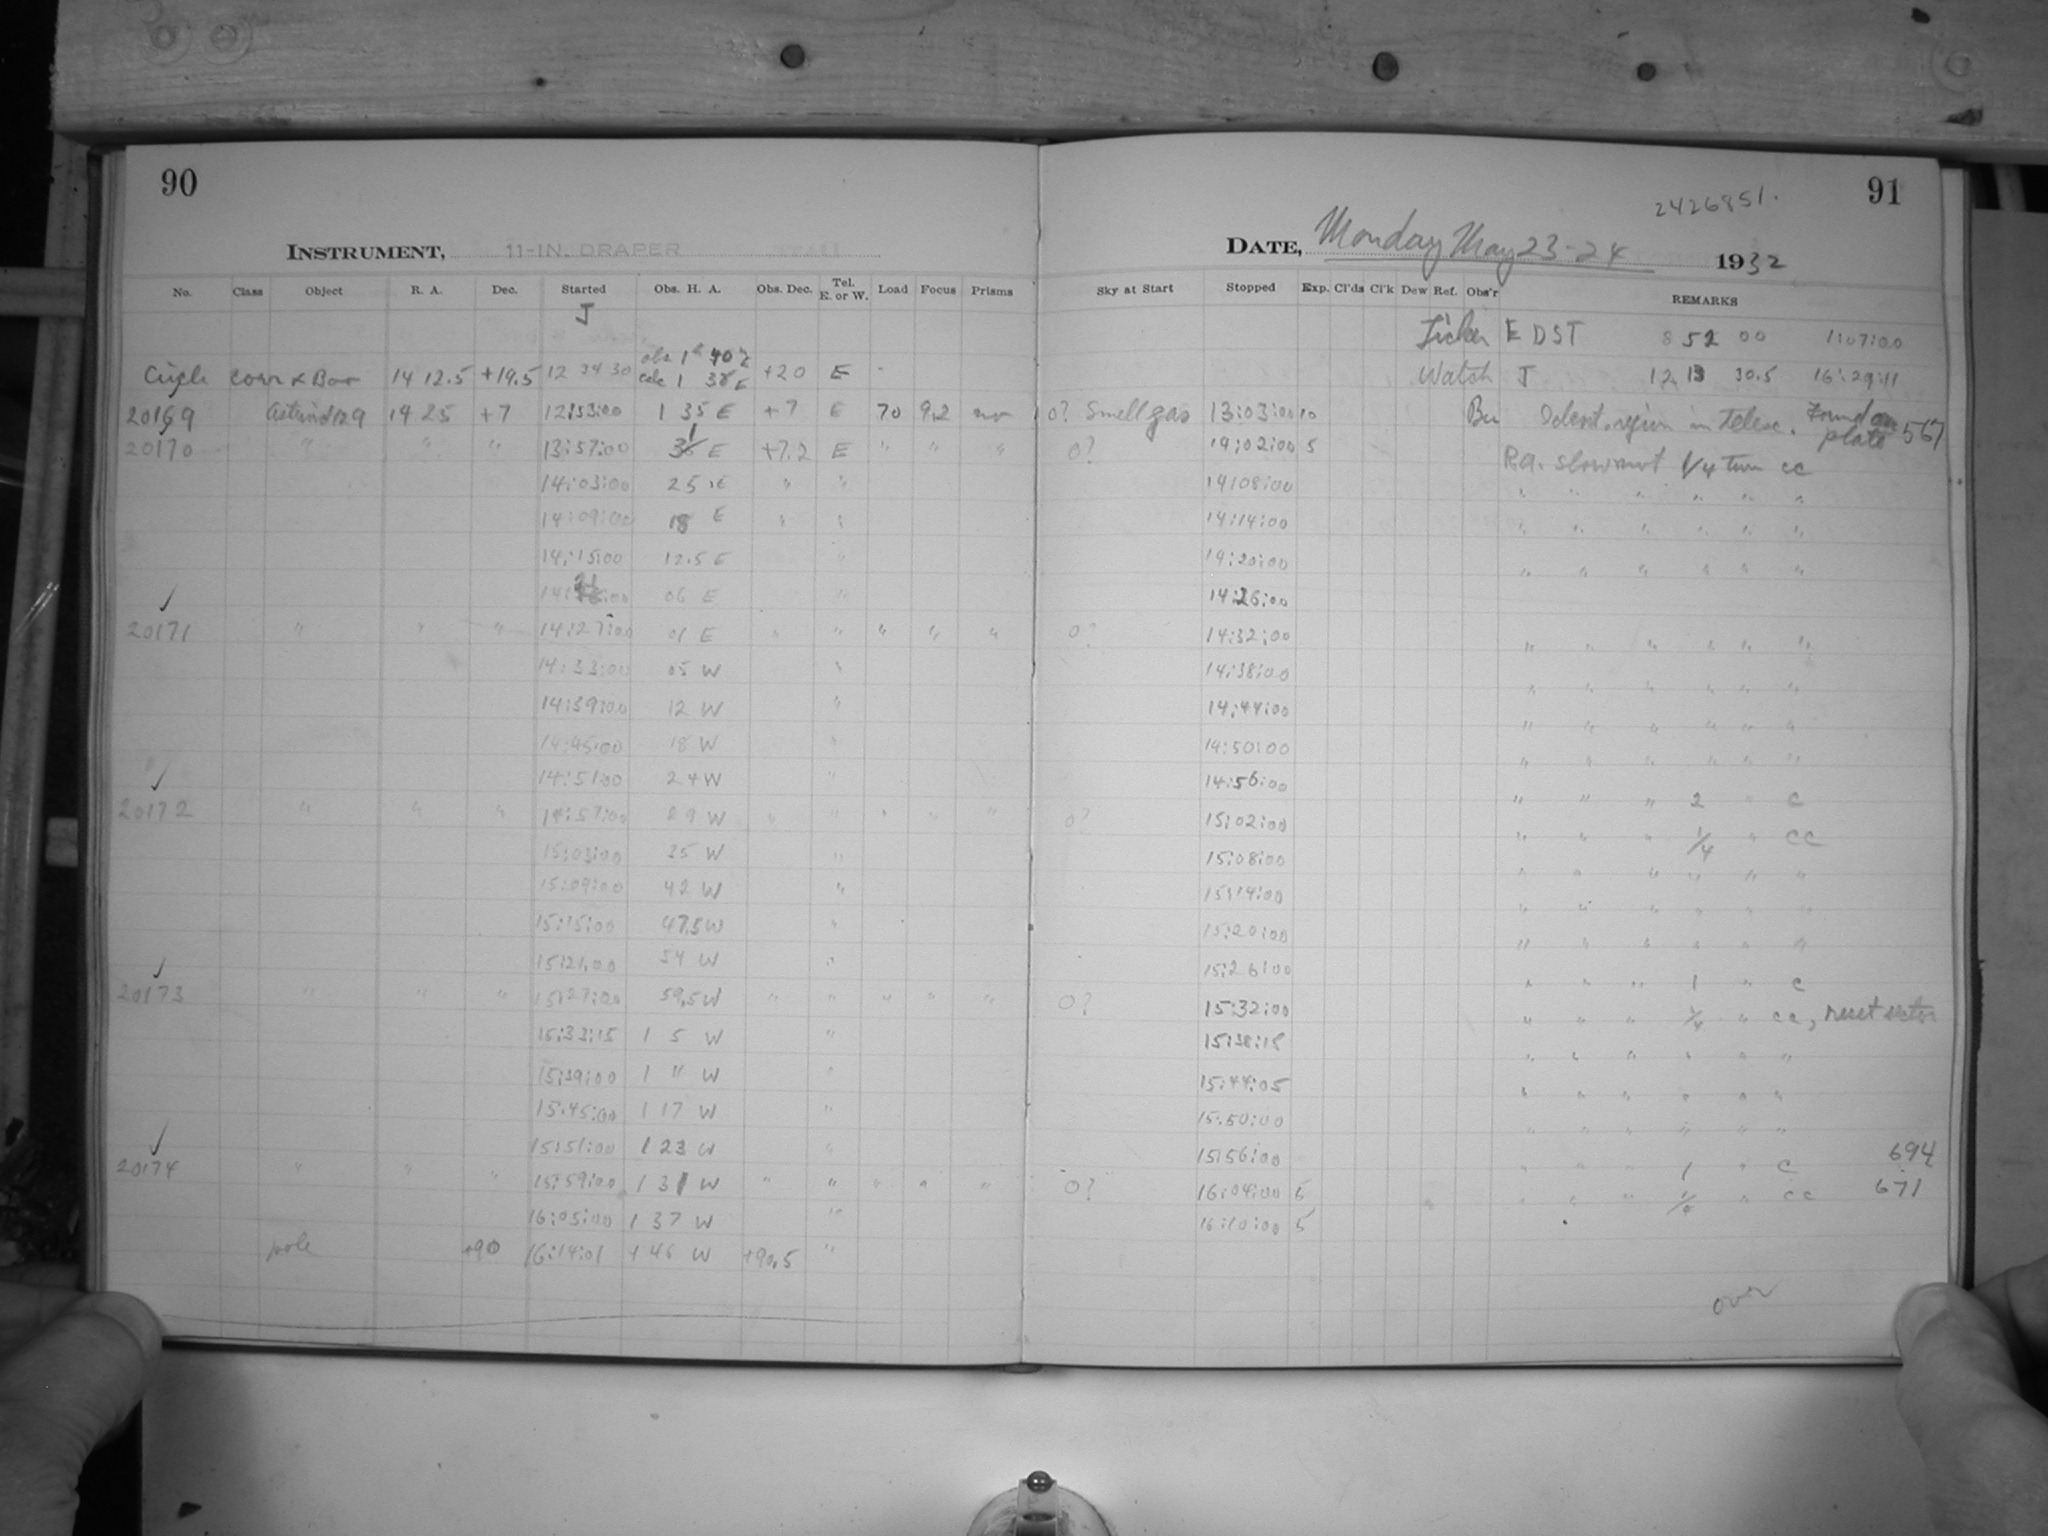 90
INSTRUMENT, 11-IN. DRAPER
No. Class Object R. A. Dec. Started Obs. H. A. Obs. Dec. Tel. E. or W. Load Focus Prisms
J
Circle corr α Boo 14 12.5 +19.5 12 34 30 obs 1h 40 calc 1 38 E +20 E
20169 14 25 +7 12:53:00 1 35 E +7 E 70 9.2 no
20170 " " " 13:57:00 31 E +7.2 E " " "
14:03:00 25 E " "
14:09:00 18 E " "
14:15:00 12.5 E "
14:21:00 06 E "
20171 " " " 14:27:00 01 E " " " " "
14:33:00 05 W "
14:39:00 12 W "
14:45:00 18 W "
14:51:00 24 W "
20172 " " " 14:57:00 29 W " " " " "
15:03:00 35 W "
15:09:00 42 W "
15:15:00 47.5 W "
15:21:00 54 W "
20173 " " " 15:27:00 59.5 W " " " " "
15:33:15 1 5 W "
15:39:00 1 11 W "
15:45:00 1 17 W "
15:51:00 1 23 W "
20174 " " " 15:59:00 1 31 W " " " " "
16:05:00 1 37 W "
pole +90 16:14:01 1 46 W +90.5 "
91
2426851.
DATE, Monday May 23-24 1932
Sky at Start Stopped Exp. Cl'ds Cl'k Dew Ref. Obs'r REMARKS
Ticker E D S T 8 52 00 1:07:00
Watch J 12 13 30.5 16:29:11
0? Smell gas 13:03:00 10 Bu Ident. region in telesc. Found on plate 567
0? 14:02:00 5 R.a. slow mot 1/4 turn cc
14:08:00 " " " " " "
14:14:00 " " " " " "
14:20:00 " " " " " "
14:26:00
0? 14:32:00 " " " " " "
14:38:00 " " " " " "
14:44:00 " " " " " "
14:50:00 " " " " " "
14:56:00 " " " 2 " c
0? 15:02:00 " " " 1/4 " cc
15:08:00 " " " " " "
15:14:00 " " " " " "
15:20:00 " " " " " "
15:26:00 " " " 1 " c
0? 15:32:00 " " " 1/4 " cc, reset sector
15:38:15 " " " " " "
15:44:05 " " " " " "
15:50:00 " " " " " "
15:56:00 " " " 1 " c 694
0? 16:04:00 5 " " " 1/4 " cc 671
16:10:00 5
over